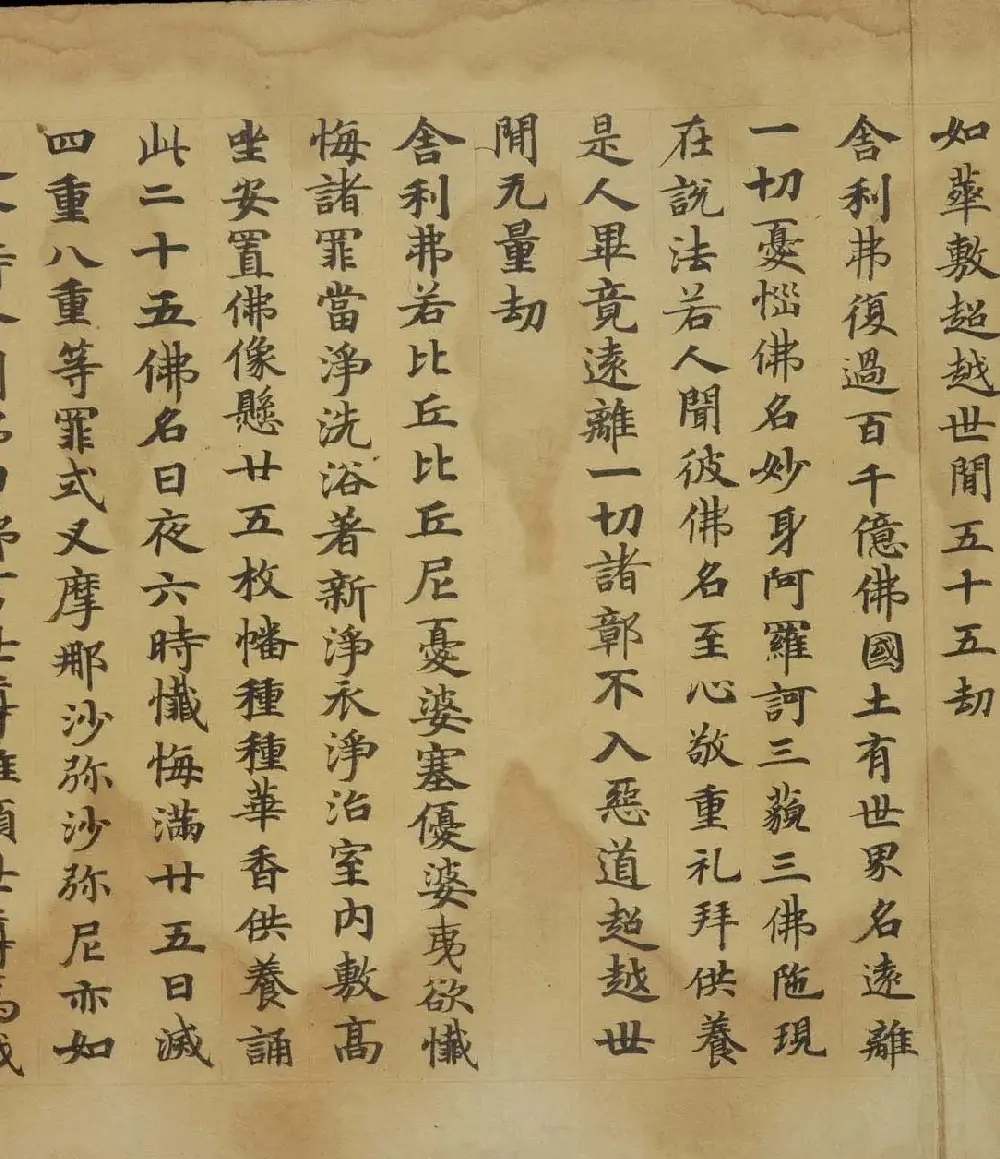 如華敷超越世間五十五劫
舍利弗復過百千億佛國土有世界名遠離
一切憂惱佛名妙身阿羅訶三藐三佛陁現
在說法若人聞彼佛名至心敬重礼拜供養
是人畢竟遠離一切諸鄣不入惡道超越世
間无量劫
舍利弗若比丘比丘尼憂婆塞優婆夷欲懺
悔諸罪當淨洗浴著新淨衣淨治室內敷高
坐安置佛像懸廿五枚幡種種華香供養誦
此二十五佛名日夜六時懺悔滿廿五日滅
四重八重等罪式叉摩那沙弥沙弥尼亦如